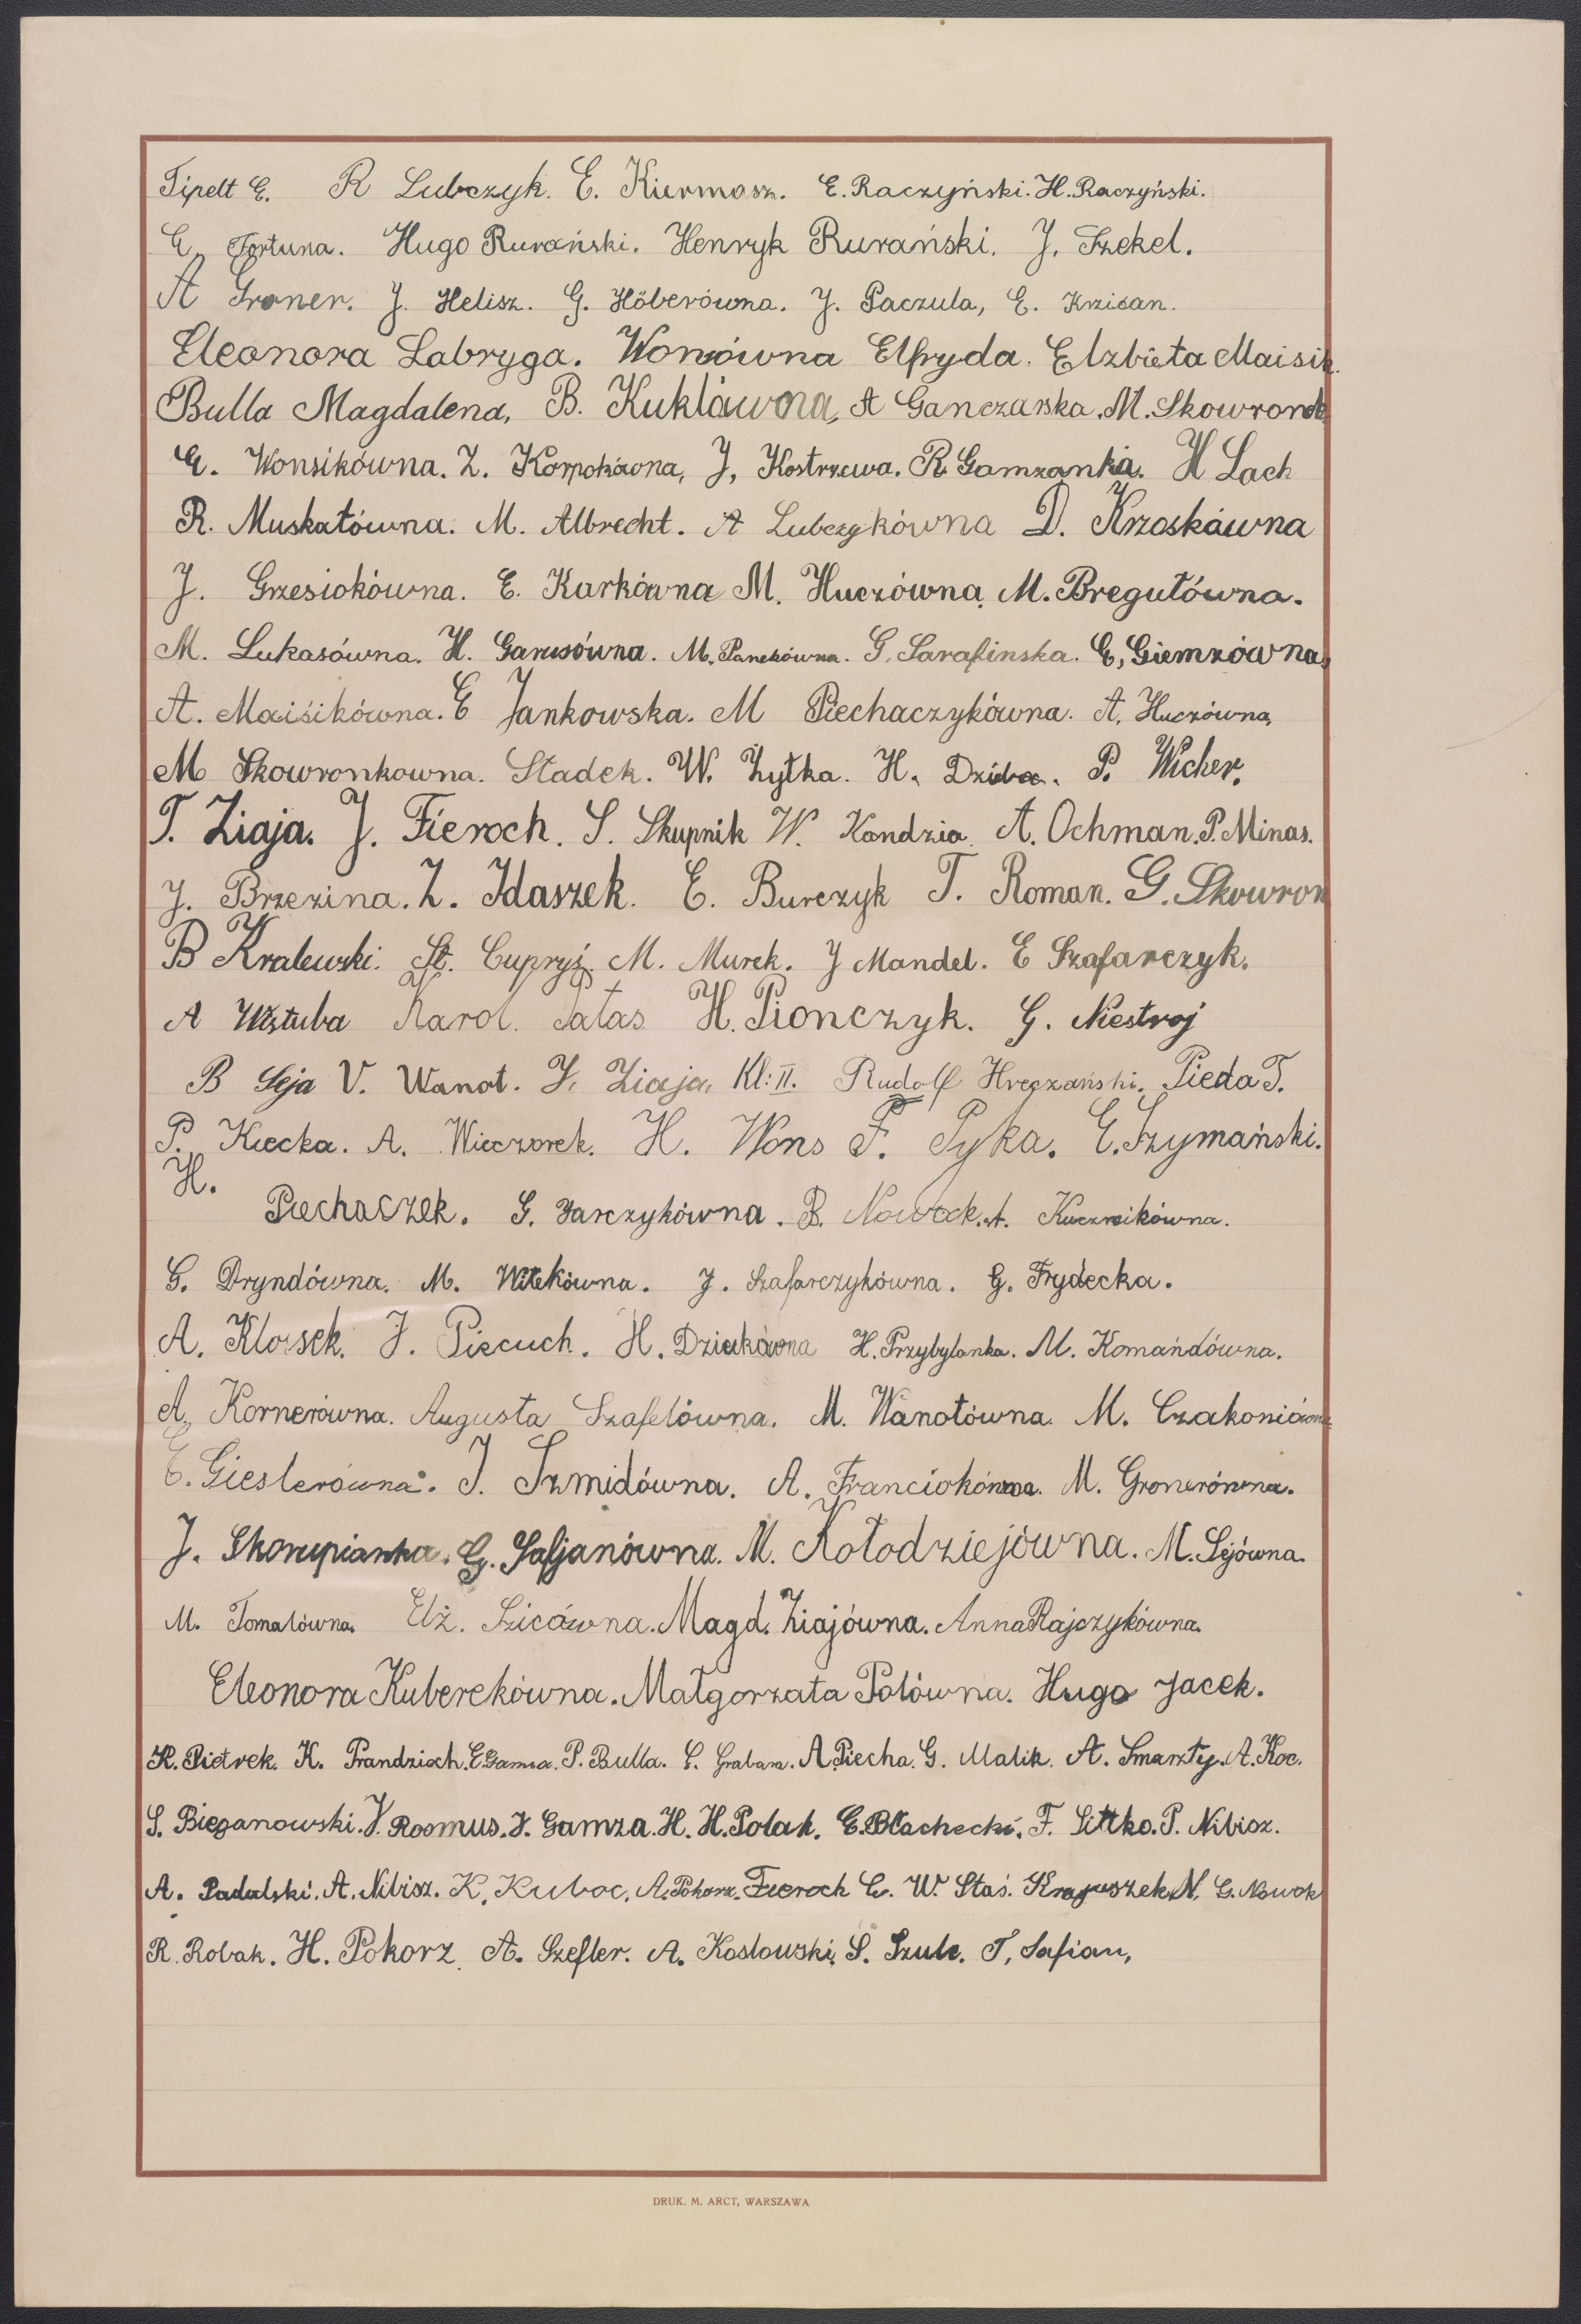 Tipelt E. R Lubczyk. E. Kiermasz. E. Raczyński. H. Raczyński.
E. Fortuna. Hugo Rurański. Henryk Rurański. J. Szekel.
A Groner. J. Helisz. G. Höberówna. J. Paczula, E. Krzican.
Eleonora Labryga. Wonsówna Elfryda. Elzbieta Maisik.
Bulla Magdalena, B. Kuklówna, A Ganczarska. M. Skowronek
E. Wonsikówna. Z. Korpokówna, J, Kostrzewa. R Gamzanka. H Lach
R. Muskatówna. M. Albrecht. A Lubczykówna D. Krzoskówna
J. Grzesiokówna. E. Kurkówna M. Huczówna, M. Bregułówna.
M. Lukasówna. H. Garusówna. M. Panekówna. G. Sarafinska. E, Giemzówna,
A. Maisikówna. E Jankowska. M Piechaczykówna. A. Huczówna,
M Skowronkowna. Stadek. W. Żytka. H. Dziba. P. Wicher.
T. Ziaja. J. Fieroch. S. Skupnik W. Kandzia. A. Ochman. P. Minas.
J. Brzezina. Z. Idaszek. E. Burczyk T. Roman. G. Skowron
B Kralewski. St. Cupryś. M. Murek. J Mandel. E Szafarczyk.
A Karol. Patas H. Pionczyk. G. Niestroj
B Seja V. Wanot. J. Ziaja, Kl: II. Rudolf Pieda T.
P. Kuecka. A. Wieczorek. H. Wons F. Pyka. E. Szymański.
H.
Piechaczek. G. Jarczykówna. B. Nowock. A. Kuczmikówna.
G. Dryndówna. M. Witekówna. J. Szafarczykówna. G. Frydecka.
A. Klossek. J. Piecuch. H. Dziukówna H. Przybylanka. M. Komańdówna.
A. Kornerówna. Augusta Szafelówna. M. Wanotówna. M. Czakoniówna
E. Gieslerówna. J. Szmidówna. A. Franciokówna. M. Gronerówna.
J. Skorupianka. G. Safjanówna. M. Kołodziejówna. M. Sejówna.
M. Tomalówna. Elż. Szicówna. Magd. Ziajówna. Anna Rajczykówna.
Eleonora Kuberekówna. Małgorzata Polówna. Hugo Jacek.
R. Pietrek. K. Prandzioch. E Gamza. P. Bulla. E. Grabara. A Piecha. G. Malik. A. Smarzły. A. Koc.
S. Bieganowski. V. Rosmus. J. Gamza. H. H. Polak. E. Błachecki. F. Littko. P. Nibisz.
A. Padalski. A. Nibisz. K, Kuboc, A. Pokorz. Fieroch E. W. Staś. Krajuszek N. G. Nowok
R. Robak. H. Pokorz. A. Szefler. A. Koslowski, S. Szulc. T, Safian,
DRUK. M. ARCT, WARSZAWA